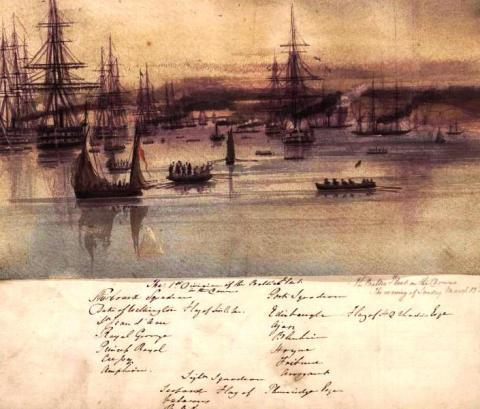 The 1st Division of the Baltic Fleet
in the Downs
The Baltic Fleet in the Downs
The evening of Sunday March
Squadron
Duke of Wellington Flag of
St Jean d'Acre
Royal George
Princess Royal
Cressy
Amphion
Port Squadron
Edinburgh Flag of H D Chads Esqr
Ajax
Blenheim
Hogue
Arrogant
Light Squadron
Leopard Flag of Plumridge Esqr